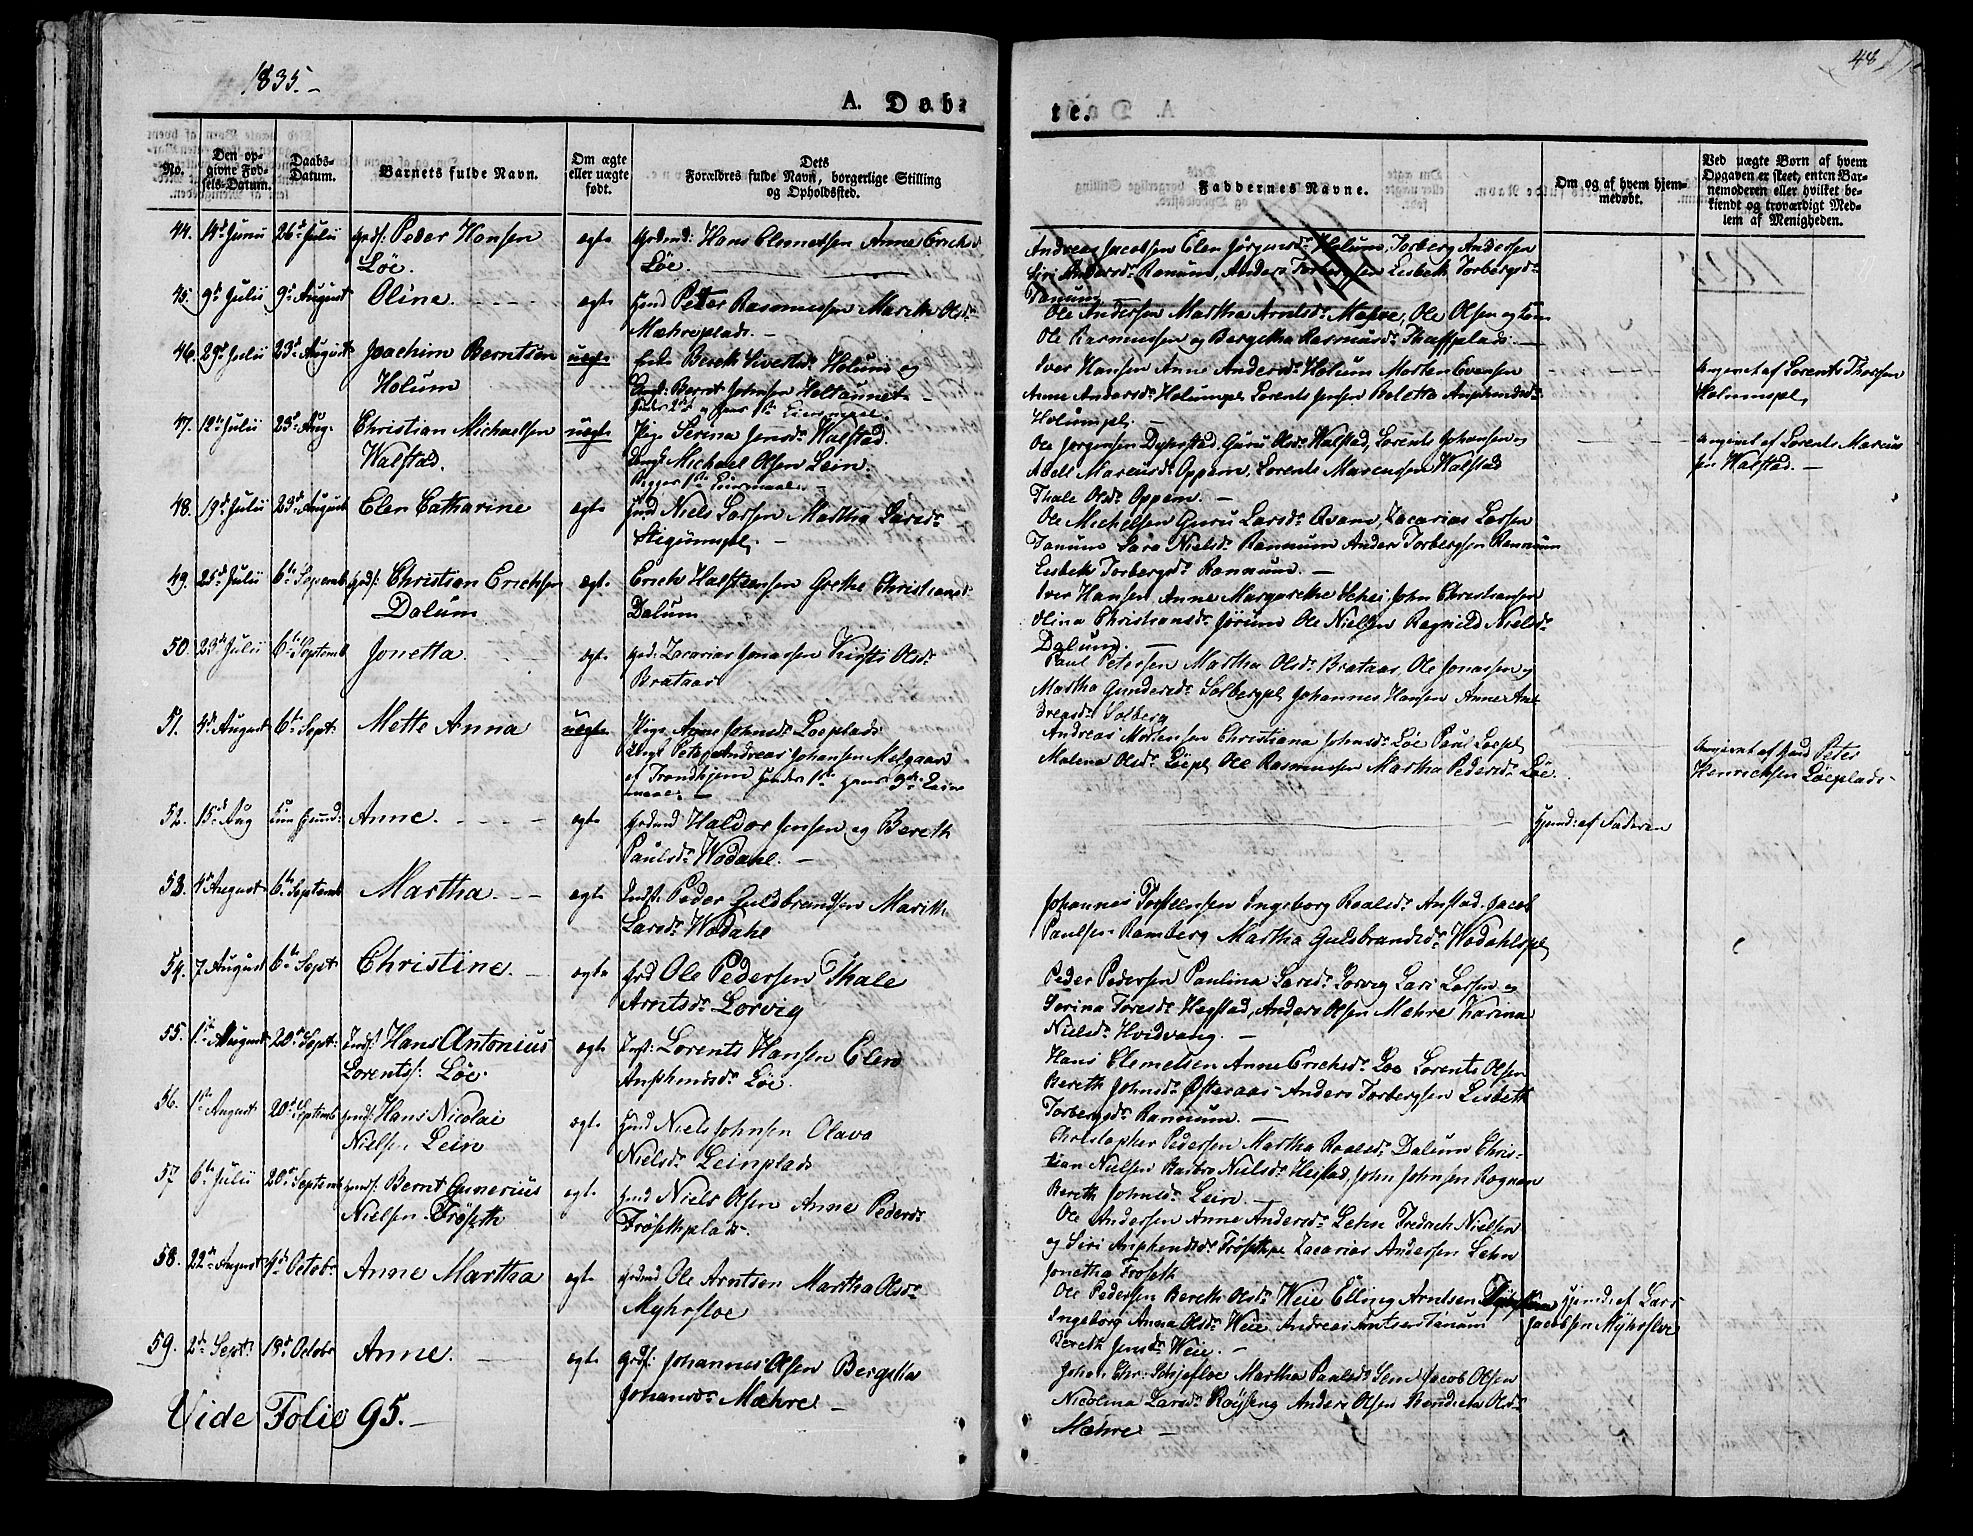 1835.
48
A. Døbte.
No.
Den opgivne Fødsels-Datum.
Daabs-Datum.
Barnets fulde Navn.
Om ægte eller uægte født.
Dets Forældres fulde Navn, borgerlige Stilling og Opholdssted.
Faddernes Navne.
Om og af hvem hjemmedøbt.
Ved uægte Børn af hvem Opgaven er skeet, enten Barnemoderen eller hvilket bekiendt og troværdigt Medlem af Menigheden.
44. 14d Junii 26d Julii Peder Hansen ægte Hans Clemetsen Anne Erichsd
Løe. Løe.
Andreas Jacobsen Elen Jørgensdr Holum, Torberg Andersen
Siri Andersdr Ranum, Anders Torbergsen Lisbeth Torbergsdr
45. 9d Julii 9d August Oline. ægte Peter Rasmussen Marith Olsdr
Mæhreplads.
Ole Andersen Martha Arntsdr Mæhre, Ole Olsen og
Ole Rasmussen og Bergitha Rasmusdr
46. 29d Julii 23d August Joachim Berntsen uægte Enke Bereth Sivertsdr Holum og
Holum Bernt Johnsen
Iver Hansen Anne Andersdr Holum Morten Evensen
Anne Andersdr Holumspl Lorents Jensen Boletta
Holumspl.
Angivet af Lorents
Holumspl,
47. 12d Julii 23d Aug. Christian Michaelsen uægte Pige Serina Jensdr Walstad.
Walstad. Michael Olsen Lein.
Ole Jørgensen Guru Olsdr Walstad, Lorents Johansen og
Adell Marcusdr Oppem, Lorents Marcussen Walstad
Thale Olsdr Oppem.
Angivet af Lorents Marcus
sen Walstad.
48. 19d Julii 23d August Elen Catharine ægte Niels Larsen Martha Larsdr
Stigumspl.
Ole Michelsen Guru Larsdr Qvam, Zacarias Larsen
Tanum Sara Nielsdr Rannum Anders Torbergsen Rannum
Lisbeth Torbergsdr Rannum.
49. 25d Julii 6te Septemb Christian Erichsen ægte Erich Halstensen Grethe Christiansd
Dalum Dalum.
Iver Hansen, Anne Margarethe John Christiansen
Olina Christiansdr Jørum Ole Nielsen Ragnild Nielsdr
Dalum.
50. 23d Julii 6te Septemb Jonetta. ægte Zacarias Jonassen Kirsti Olsdr
Brataas
Paul Petersen Martha Olsdr Brataas, Ole Jonassen og
Martha Gundersdr Solbergpl Johannes Hansen Anne And
dreasdr Solberg
51. 4d August 6te Sept: Mette Anna uægte Pige Anne Johnsdr Løeplads
Peter Andreas Johansen Melgaard
af Trondhjem
Andreas Mortensen Christiana Johnsdr Løe Paul Løepl
Malena Olsdr Løepl Ole Rasmussen Martha Pedersdr Løe
Angivet af Peter
Henrichsen Løeplads
52. 15d Aug Anne. ægte Haldor Jensen og Bereth
Paulsdr Wodahl.
Hjemd: af Faderen
53. 4d August 6te Septemb Martha. ægte Peder Guldbrandsen Marith
Larsdr Wodahl
Johannes Torstensen Ingeborg Roalsdr Anstad. Jacob
Paulsen Ramberg Martha Gulbrandsdr Wodahlspl
54. 7 August 6te Sept Christine. ægte Ole Pedersen Thale
Arntsdr Lorvig
Peder Pedersen Paulina Larsdr Lorvig Lars Larsen og
Serina Toresdr Hegstad, Anders Olsen Mæhre Karina
Nielsdr Hvidvang.
55. 1ste August 20de Sept: Hans Antonius ægte Lorents Hansen Elen
Lorents: Løe. Amphindsdr Løe.
Hans Clemetsen Anne Erichsdr Løe Lorents Olsen
Bereth Johnsdr Østeraas Anders Torbergsen Lisbeth
Torbergsdr Rannum.
56. 1ste August 20de Septemb Hans Nicolai ægte Niels Johnsen Olava
Niels: Lein Nielsdr Leinplads
Christopher Pedersen Martha Roalsdr Dalum Chris-
tian Nielsen Barbro Nielsdr Heistad, John Johnsen Rognan
Bereth Johnsdr Lein.
57 6te Julii 20de Septemb Bernt Gunerius ægte Niels Olsen Anne Pedersdr
Nielsen Frøseth Frøsethplads.
Ole Andersen Anne Andersdr Lehn Fredrich Nielsen
og Siri Amphindsdr Frøsethpl Zacarias Andersen Lehn
Jonetha Frøseth
58. 22de August 4de Octobr Anne Martha ægte Ole Arntsen Martha Olsdr
Myhrsloe
Ole Pedersen Bereth Olsdr Weie Elling Arntsen
Ingeborg Anna Olsdr Weie Andreas Arntsen Tanum
Bereth Jensdr Weie.
Hjemd: af Lars
Jacobsen Myhrsloe
59. 2de Sept: 18de Octobr Anne. ægte Johannes Olsen Bergitha
Johansdr Mæhre
Johan Chr: Schjefloe Martha Paulsdr Lein Jacob Olsen
Nicolina Larsdr Røysing Anders Olsen Bendicta Olsdr
Mæhre
Vide Folio 95.